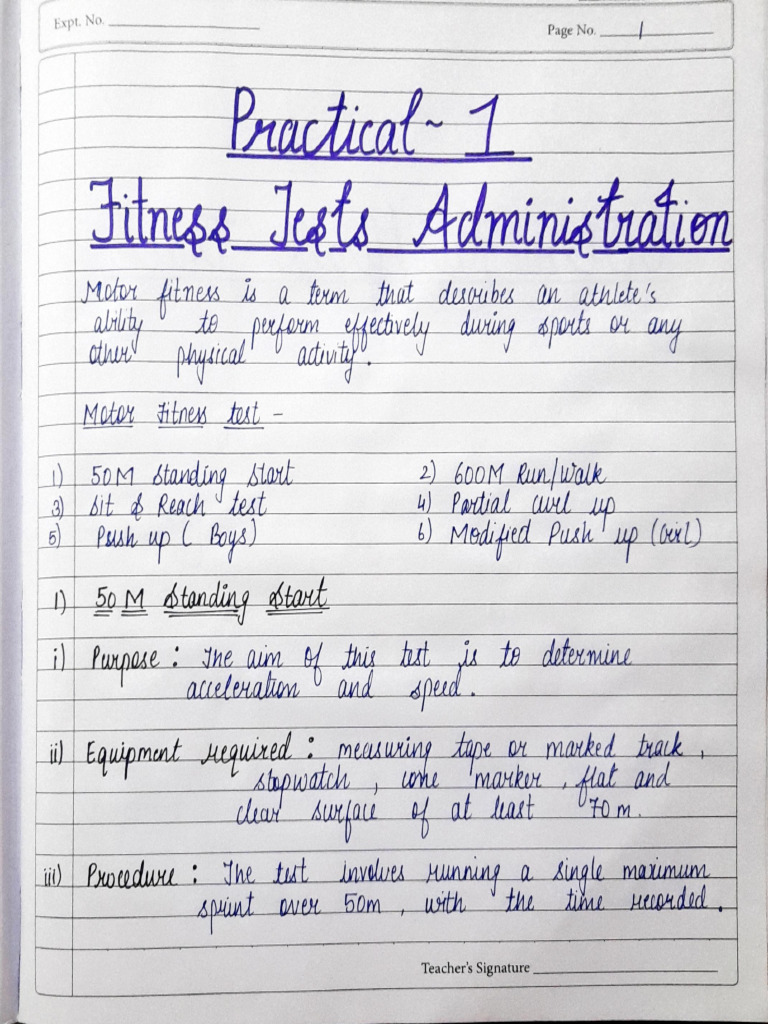 Expt. No.
Page No. 1
Practical ~ 1
Fitness Tests Administration
Motor fitness is a term that describes an athlete's
ability to perform effectively during sports or any
other physical activity.
Motor Fitness test -
1) 50M Standing Start 2) 600M Run/Walk
3) Sit & Reach test 4) Partial curl up
5) Push up ( Boys) 6) Modified Push up (Girl)
1) 50 M Standing Start
i) Purpose : The aim of this test is to determine
acceleration and speed.
ii) Equipment required : measuring tape or marked track ,
stopwatch , cone marker , flat and
clear surface of at least 70 m.
iii) Procedure : The test involves running a single maximum
sprint over 50m , with the time recorded.
Teacher's Signature